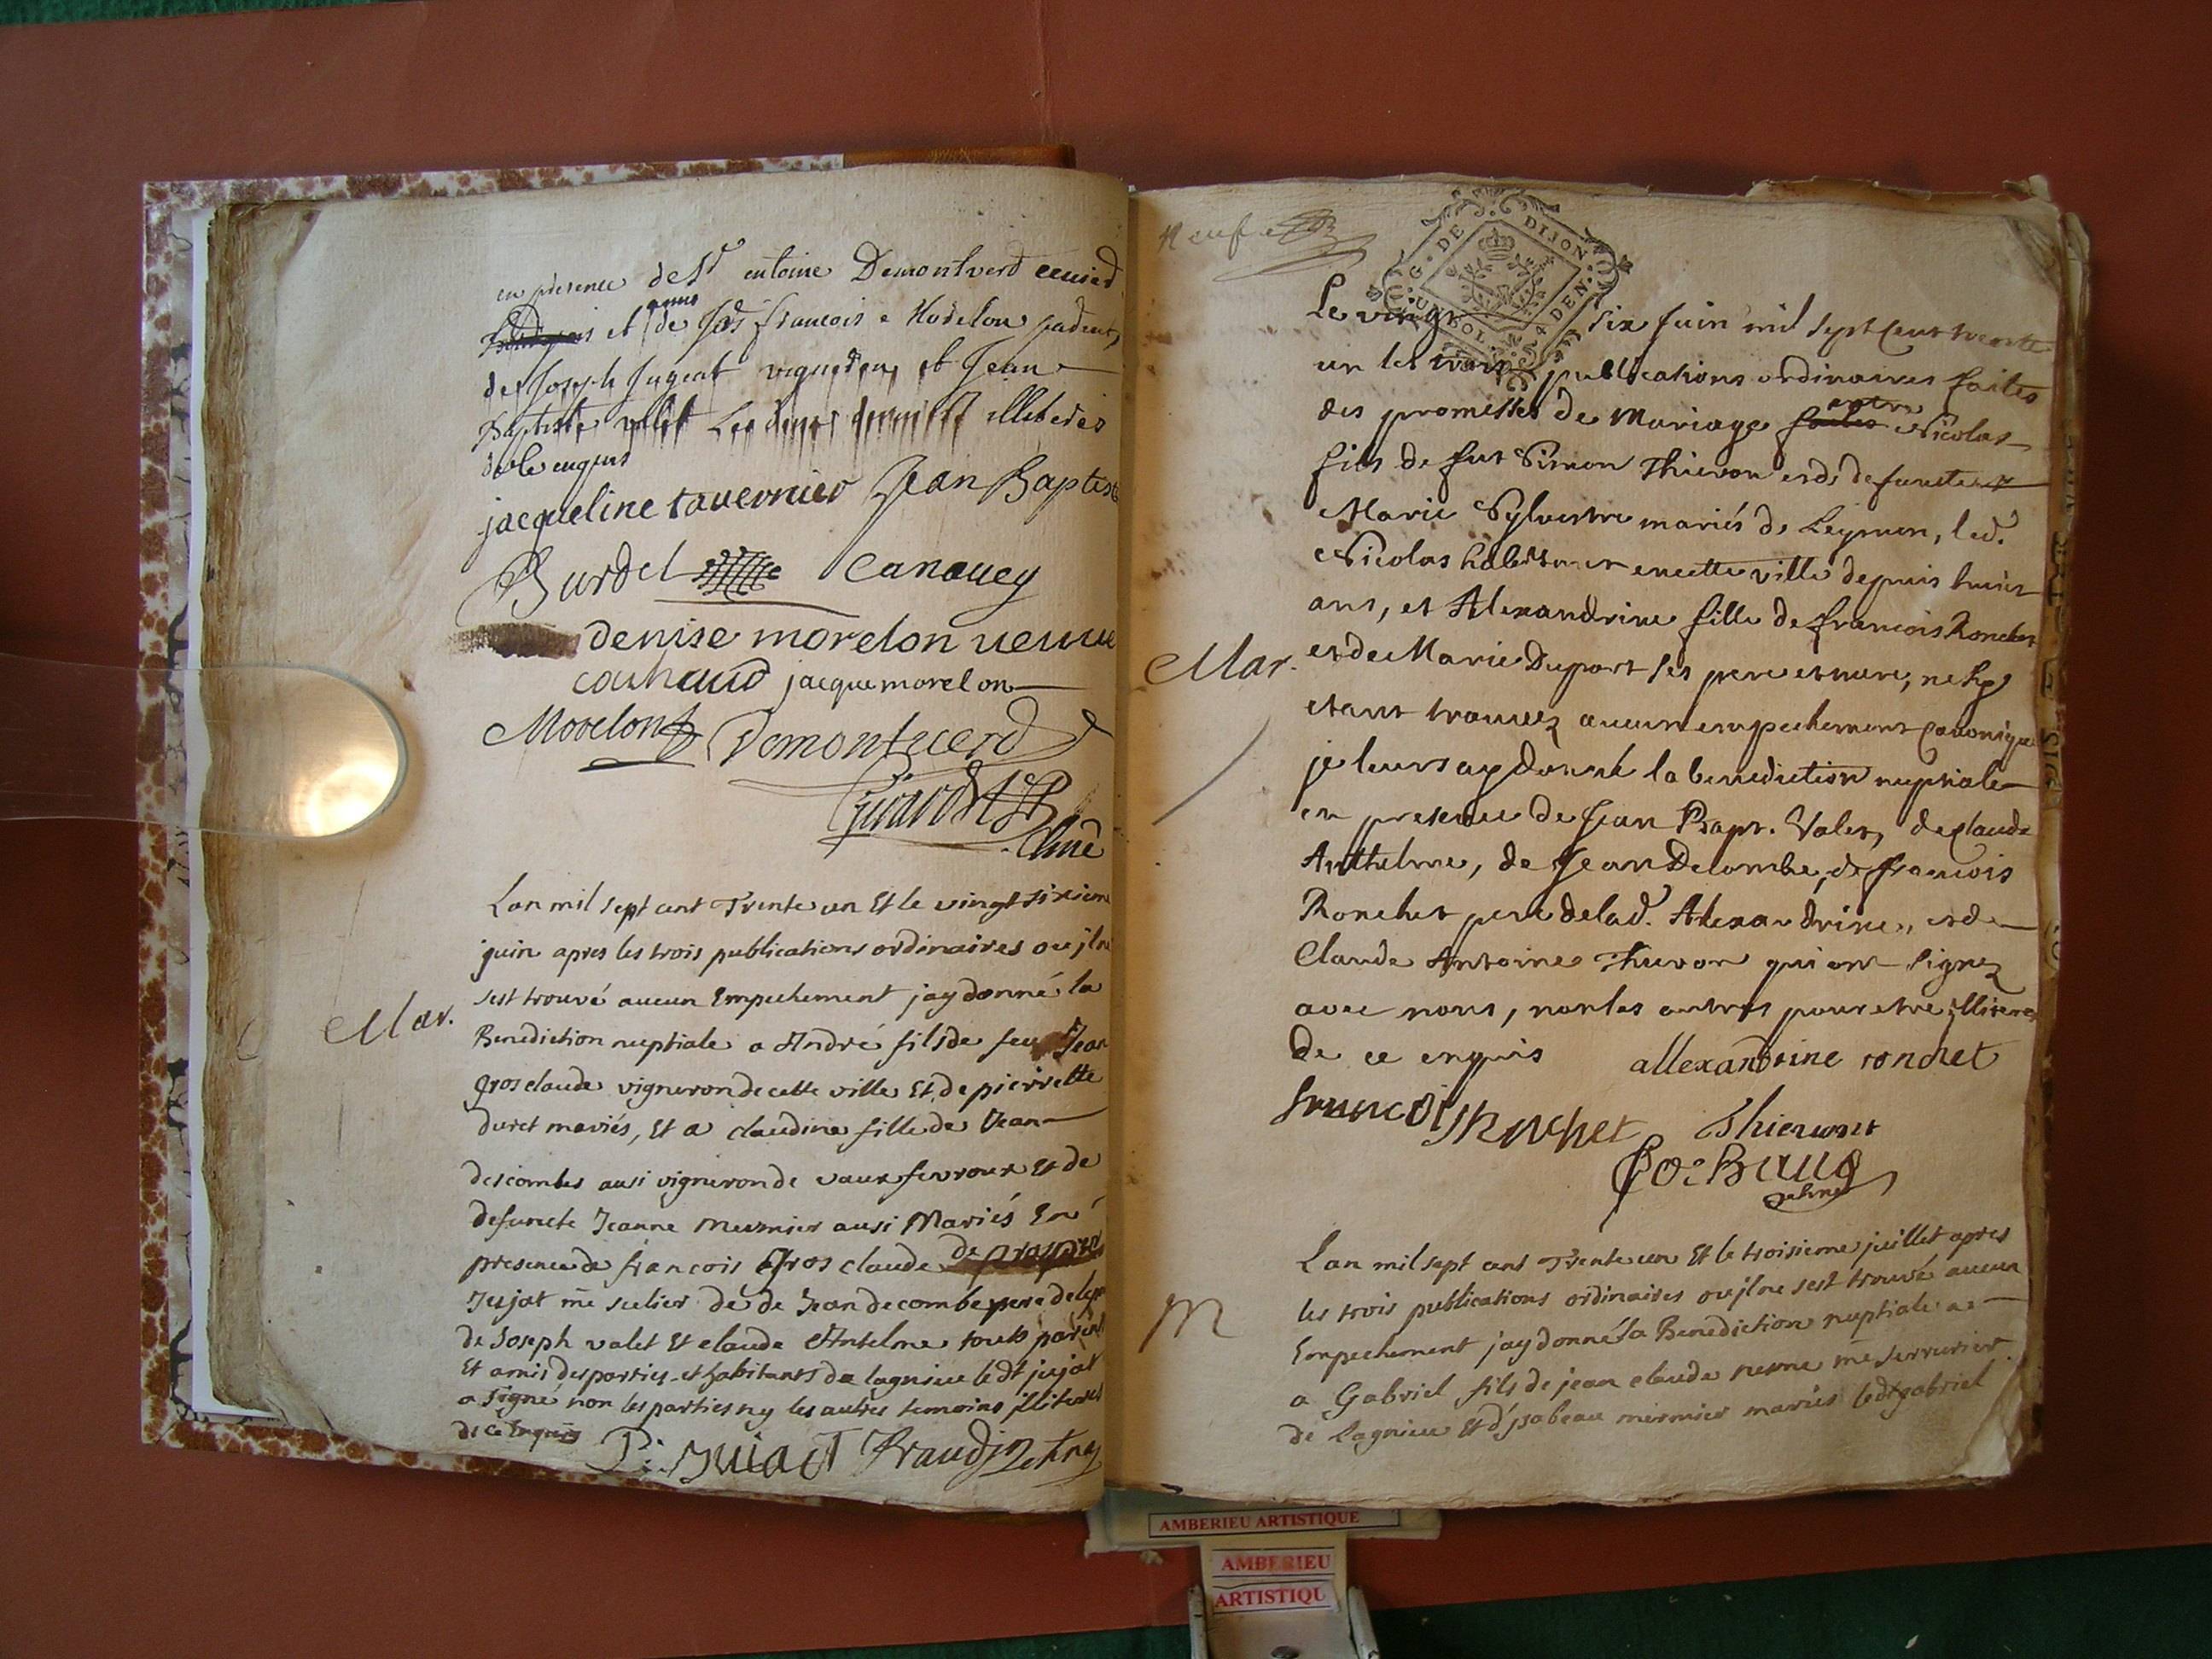 en presence de Sr entoine Demontverd
et de Jos françois Morelon
de Joseph Jugeat vigneron et Jean
Baptiste valet illiteres
de le enquis
jacqueline tauernier Jean Baptiste
Burdel Canouey
denise morelon veuue
cochaud jacque morelon
Morelon Demontverd
Curé
Lan mil sept cent Trente un Et le vingt sixieme
juin apres les trois publications ordinaires ou jl ne
sest trouvé aucun Empechement jay donné la
Mar.
Benediction nuptiale a André fils de feu Jean
gros claude vigneron de cette ville Et de pierrette
duret mariés, Et a claudine fille de Jean
descombes ausi vigneron de vaux fevroux Et de
defuncte Jeanne mermier ausi Mariés En
presence de francois gros claude de
Jujat me selier de de Jean decombe pere de
de Joseph valet Et claude Antelme touts parents
Et amis des parties et habitants de lagnieu le dt jujat
a signé non les parties ny les autres temoins jlliteres
de ce Enquis
P. Juiat Fraudin
neuf
G. DE DIJON
UN SOL 4 DEN.
Le vingt six Juin mil sept cent trente
un les trois publications ordinaires faites
des promesses de Mariage faites entre Nicolas
fils de fut Simon Thievon et de defuncte
Marie Sylvestre mariés de Leymen, led.
Nicolas habitant en cette ville depuis huict
ans, et Alexandrine fille de francois Ronchet
Mar.
et de Marie Duport ses pere et mere, ne sy
etant trouvez aucun empechement canonique
je leurs ay donné la benediction nuptiale
en presence de Jean Bapt. Valet, de claude
Anthelme, de Jean Delombe, de francois
Ronchet pere de lad. Alexandrine, et de
Claude Antoine Thievon qui ont signez
avec nous, non les autres pour etre jlliteres
de ce enquis allexandrine ronchet
francois Ronchet Thievont
Lan mil sept cens Trente un Et le troisieme juillet apres
les trois publications ordinaires ou jl ne sest trouvé aucun
M
Empechement jay donné la Benediction nuptiale a
a Gabriel fils de jean claude perne me serrurier
de lagnieu Et d'jsabeau mermier mariés le dt gabriel
AMBERIEU ARTISTIQUE
AMBERIEU
ARTISTIQU